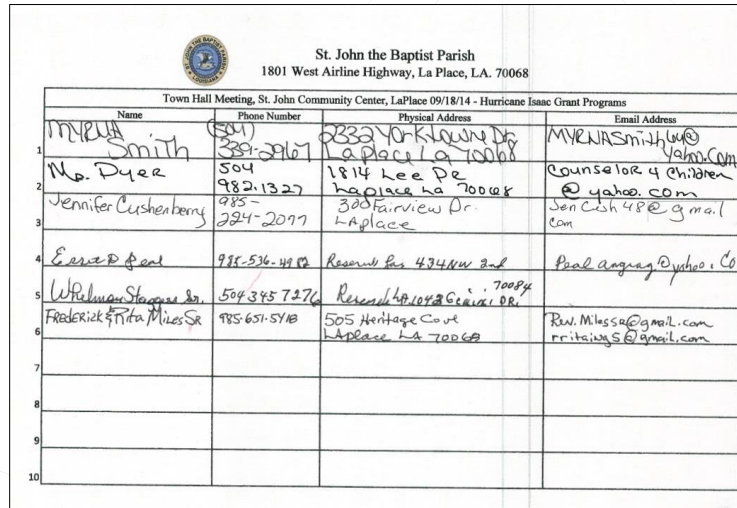 St. John the Baptist Parish
1801 West Airline Highway, La Place, LA. 70068
Town Hall Meeting, St. John Community Center, LaPlace 09/18/14 - Hurricane Isaac Grant Programs
Name Phone Number Physical Address Email Address
1 MYRNA Smith (504) 339-2967 2332 Yorktowne Dr Laplace La 70068 MYRNASmith64@ Yahoo.Com
2 Ms. Dyer 504 982.1327 1814 Lee Dr Laplace La 70068 Counselor 4 Children @ yahoo.com
3 Jennifer Cushenberry 985- 224-2077 300 Fairview Dr. LAplace JenCush48@gmail com
4 985-536-4982 434 NW 2nd
5 504 345 7276 70084
6 FREDERICK & Rita Miles SR 985-651-5418 505 Heritage Cove LAplace LA 70068 Rev.Milessr@gmail.com
7
8
9
10